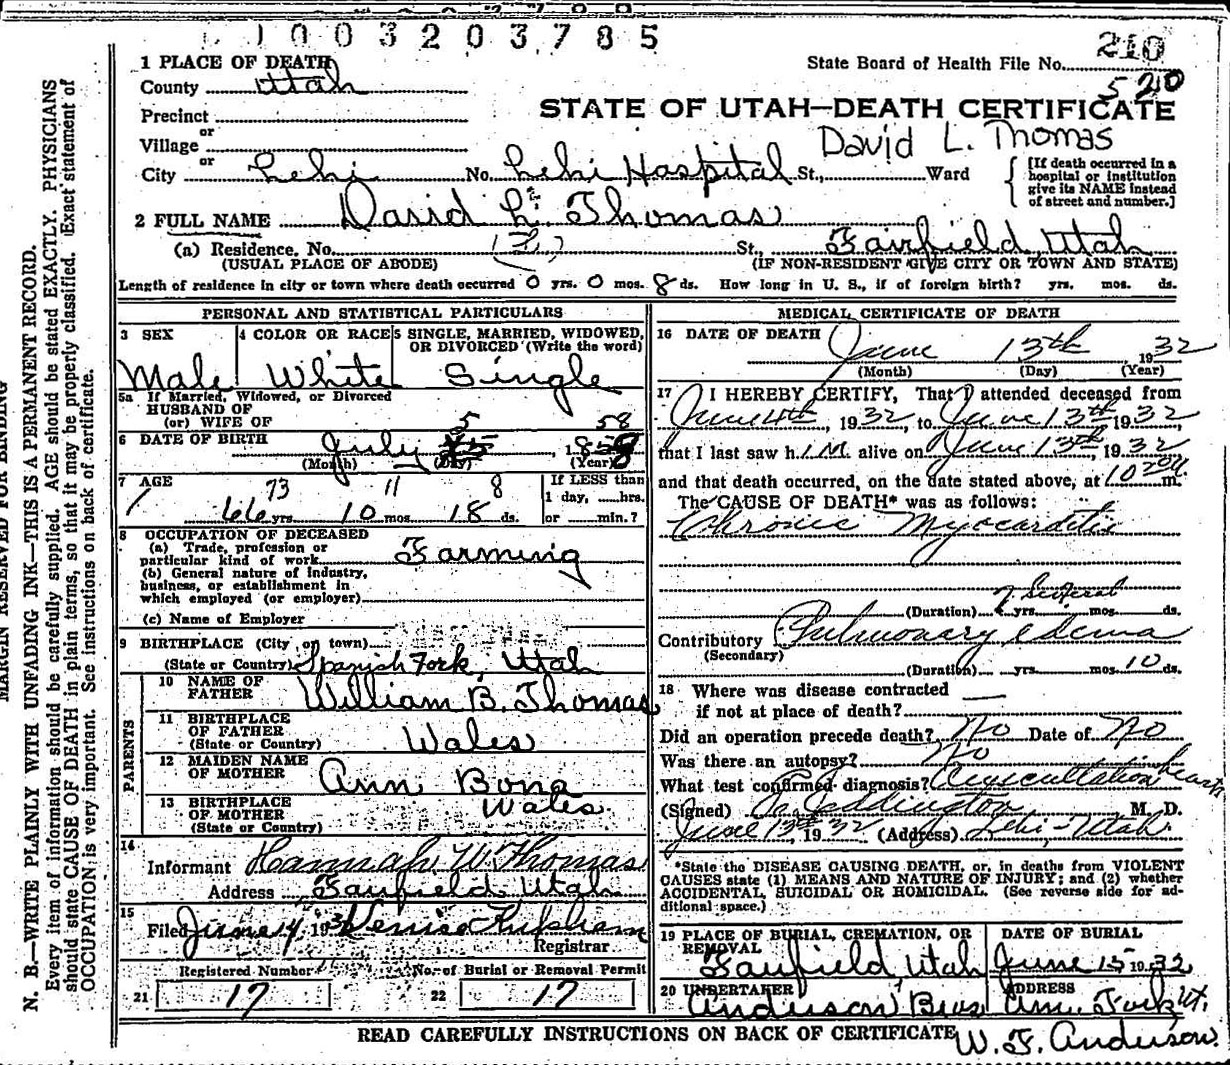 1003203785
210
State Board of Health File No.
520
1 PLACE OF DEATH
County Utah
STATE OF UTAH—DEATH CERTIFICATE
Precinct
or
Village
David L. Thomas
or
City Lehi No. Lehi Hospital St., Ward
[If death occurred in a hospital or institution give its NAME instead of street and number.]
2 FULL NAME David L. Thomas
(a) Residence, No. St., Fairfield, Utah
(USUAL PLACE OF ABODE) (IF NON-RESIDENT GIVE CITY OR TOWN AND STATE)
Length of residence in city or town where death occurred 0 yrs. 0 mos. 8 ds. How long in U. S., if of foreign birth? yrs. mos. ds.
PERSONAL AND STATISTICAL PARTICULARS
3 SEX 4 COLOR OR RACE 5 SINGLE, MARRIED, WIDOWED, OR DIVORCED (Write the word)
Male White Single
5a If Married, Widowed, or Divorced
HUSBAND OF
(or) WIFE OF
5 58
6 DATE OF BIRTH July 185
(Month) (Day) (Year)
7 AGE 73 11 8
66 yrs. 10 mos. 18 ds.
If LESS than
1 day, hrs.
or min.?
8 OCCUPATION OF DECEASED
(a) Trade, profession or
particular kind of work Farming
(b) General nature of Industry,
business, or establishment in
which employed (or employer)
(c) Name of Employer
9 BIRTHPLACE (City or town)
(State or Country) Spanish Fork, Utah
PARENTS
10 NAME OF
FATHER William B. Thomas
11 BIRTHPLACE
OF FATHER Wales
(State or Country)
12 MAIDEN NAME
OF MOTHER Ann Bona
13 BIRTHPLACE
OF MOTHER Wales
(State or Country)
14
Informant Hannah W Thomas
Address Fairfield Utah
15
Filed June 14, 193
Registrar
Registered Number No. of Burial or Removal Permit
21 17 22 17
MEDICAL CERTIFICATE OF DEATH
16 DATE OF DEATH
June 13th 1932
(Month) (Day) (Year)
17 I HEREBY CERTIFY, That I attended deceased from
June 4th, 1932, to June 13th 1932,
that I last saw h.im. alive on June 13th, 1932
and that death occurred, on the date stated above, at m.
The CAUSE OF DEATH* was as follows:
Chronic Myocarditis
(Duration) Several yrs. mos. ds.
Contributory Pulmonary edema
(Secondary)
(Duration) yrs. mos. 10 ds.
18 Where was disease contracted
if not at place of death?
Did an operation precede death? No Date of No
Was there an autopsy? No
What test confirmed diagnosis? Auscultation heart
(Signed) Eddington M. D.
June 13th, 1932 (Address) Lehi-Utah
*State the DISEASE CAUSING DEATH, or, in deaths from VIOLENT
CAUSES state (1) MEANS AND NATURE OF INJURY; and (2) whether
ACCIDENTAL, SUICIDAL OR HOMICIDAL. (See reverse side for ad-
ditional space.)
19 PLACE OF BURIAL, CREMATION, OR REMOVAL DATE OF BURIAL
Fairfield, Utah June 15 1932
20 UNDERTAKER ADDRESS
Anderson Bros Am. Fork Ut.
READ CAREFULLY INSTRUCTIONS ON BACK OF CERTIFICATE
W. F. Anderson
MARGIN RESERVED FOR BINDING
N. B.—WRITE PLAINLY WITH UNFADING INK—THIS IS A PERMANENT RECORD.
Every item of information should be carefully supplied. AGE should be stated EXACTLY. PHYSICIANS
should state CAUSE OF DEATH in plain terms, so that it may be properly classified. Exact statement of
OCCUPATION is very important. See instructions on back of certificate.